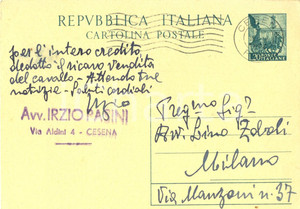 REPVBBLICA ITALIANA
CARTOLINA POSTALE
per l'intero credito
dedotto il ricavo vendita
del cavallo - Attendo tue
notizie - Saluti cordiali
Irzio
Avv. IRZIO PASINI
Via Aldini 4 - CESENA
Pregmo Sigr
Avv. Lino Zdoli
Milano
Via Manzoni n. 37